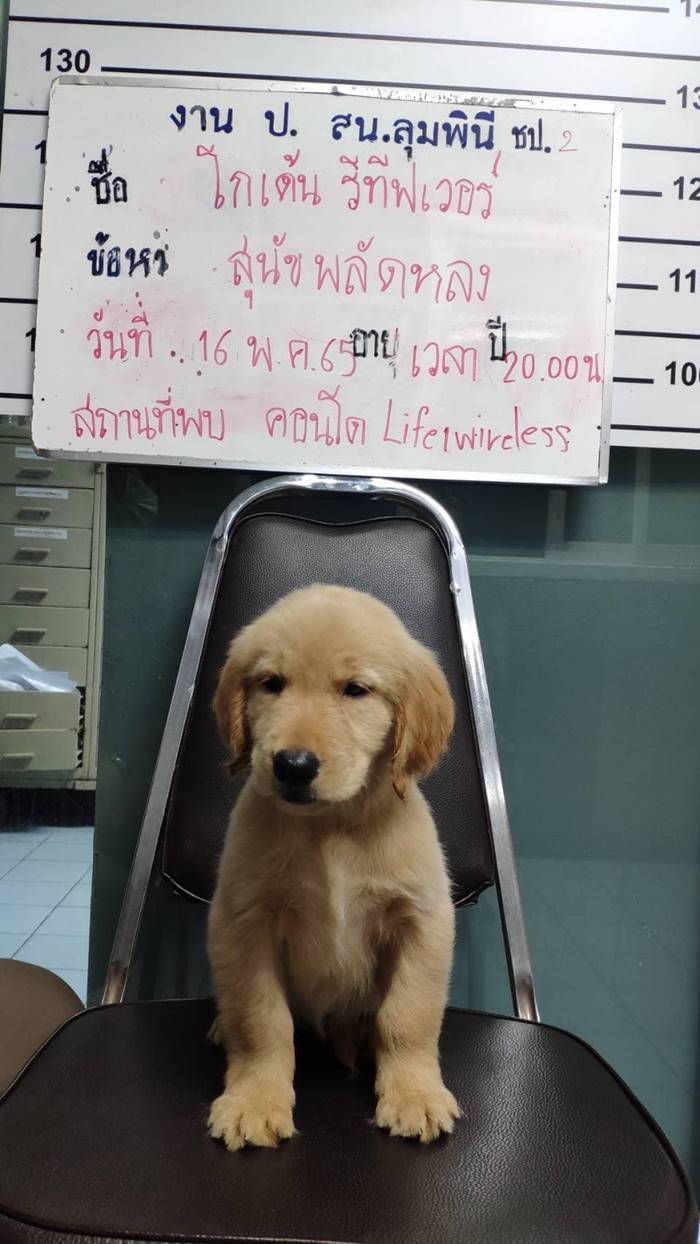 130
งาน ป. สน.ลุมพินี ชป. 2
ชื่อ โกเด้น รีทีฟเวอร์
ข้อหา สุนัขพลัดหลง
วันที่ . 16 พ.ค.65 อายุ เวลา ปี 20.00น.
สถานที่พบ คอนโด Life1wireless